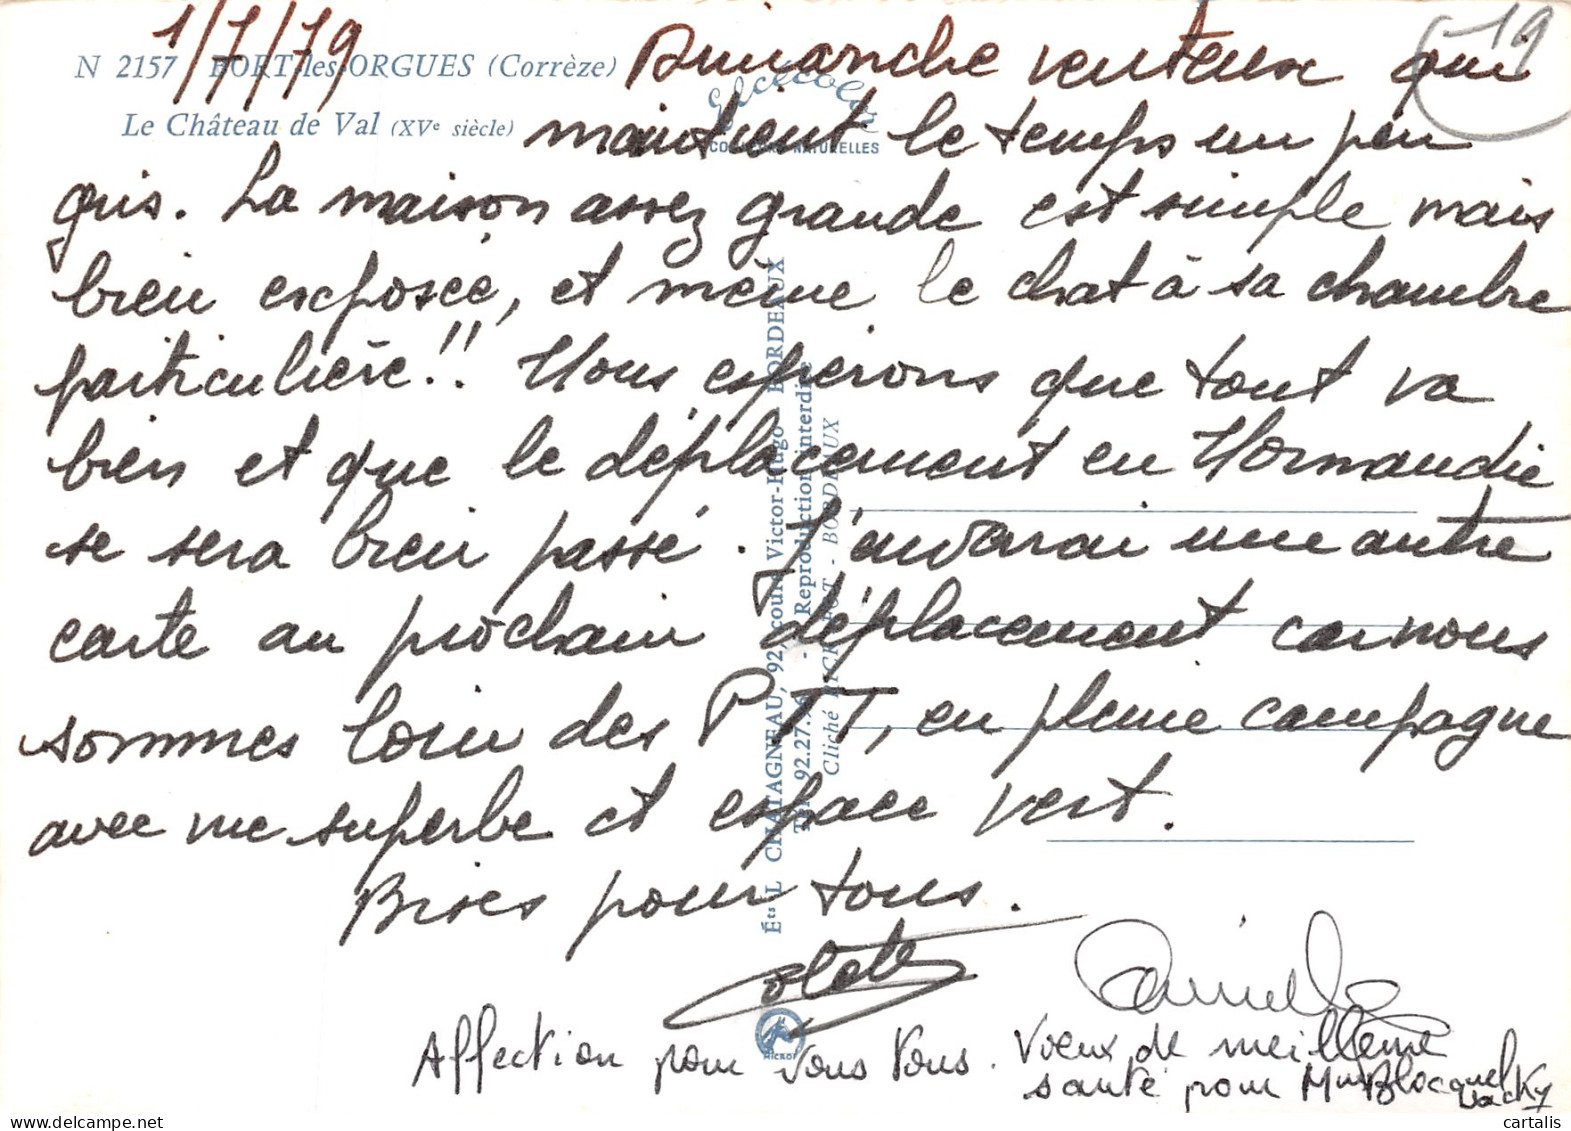 1/7/79
19
N 2157 BORT-les-ORGUES (Corrèze)
Le Château de Val (XVe siècle)
COULEURS NATURELLES
Dimanche venteux qui
maintient le temps un peu
gris. La maison assez grande est simple mais
bien exposée, et même le chat à sa chambre
particulière!! Nous esperons que tout va
bien et que le déplacement en Normandie
se sera bien passé. J'enverai une autre
carte au prochain déplacement car nous
sommes loin des PTT, en pleine campagne
avec vue superbe et espace vert.
Bises pour tous.
Danielle
Affection pour vous tous. Vœux de meilleure
santé pour Mme Blocquel
Jacky
Éts L. CHATAGNEAU, 92, cours Victor-Hugo - BORDEAUX
Reproduction interdite
BORDEAUX
cartalis